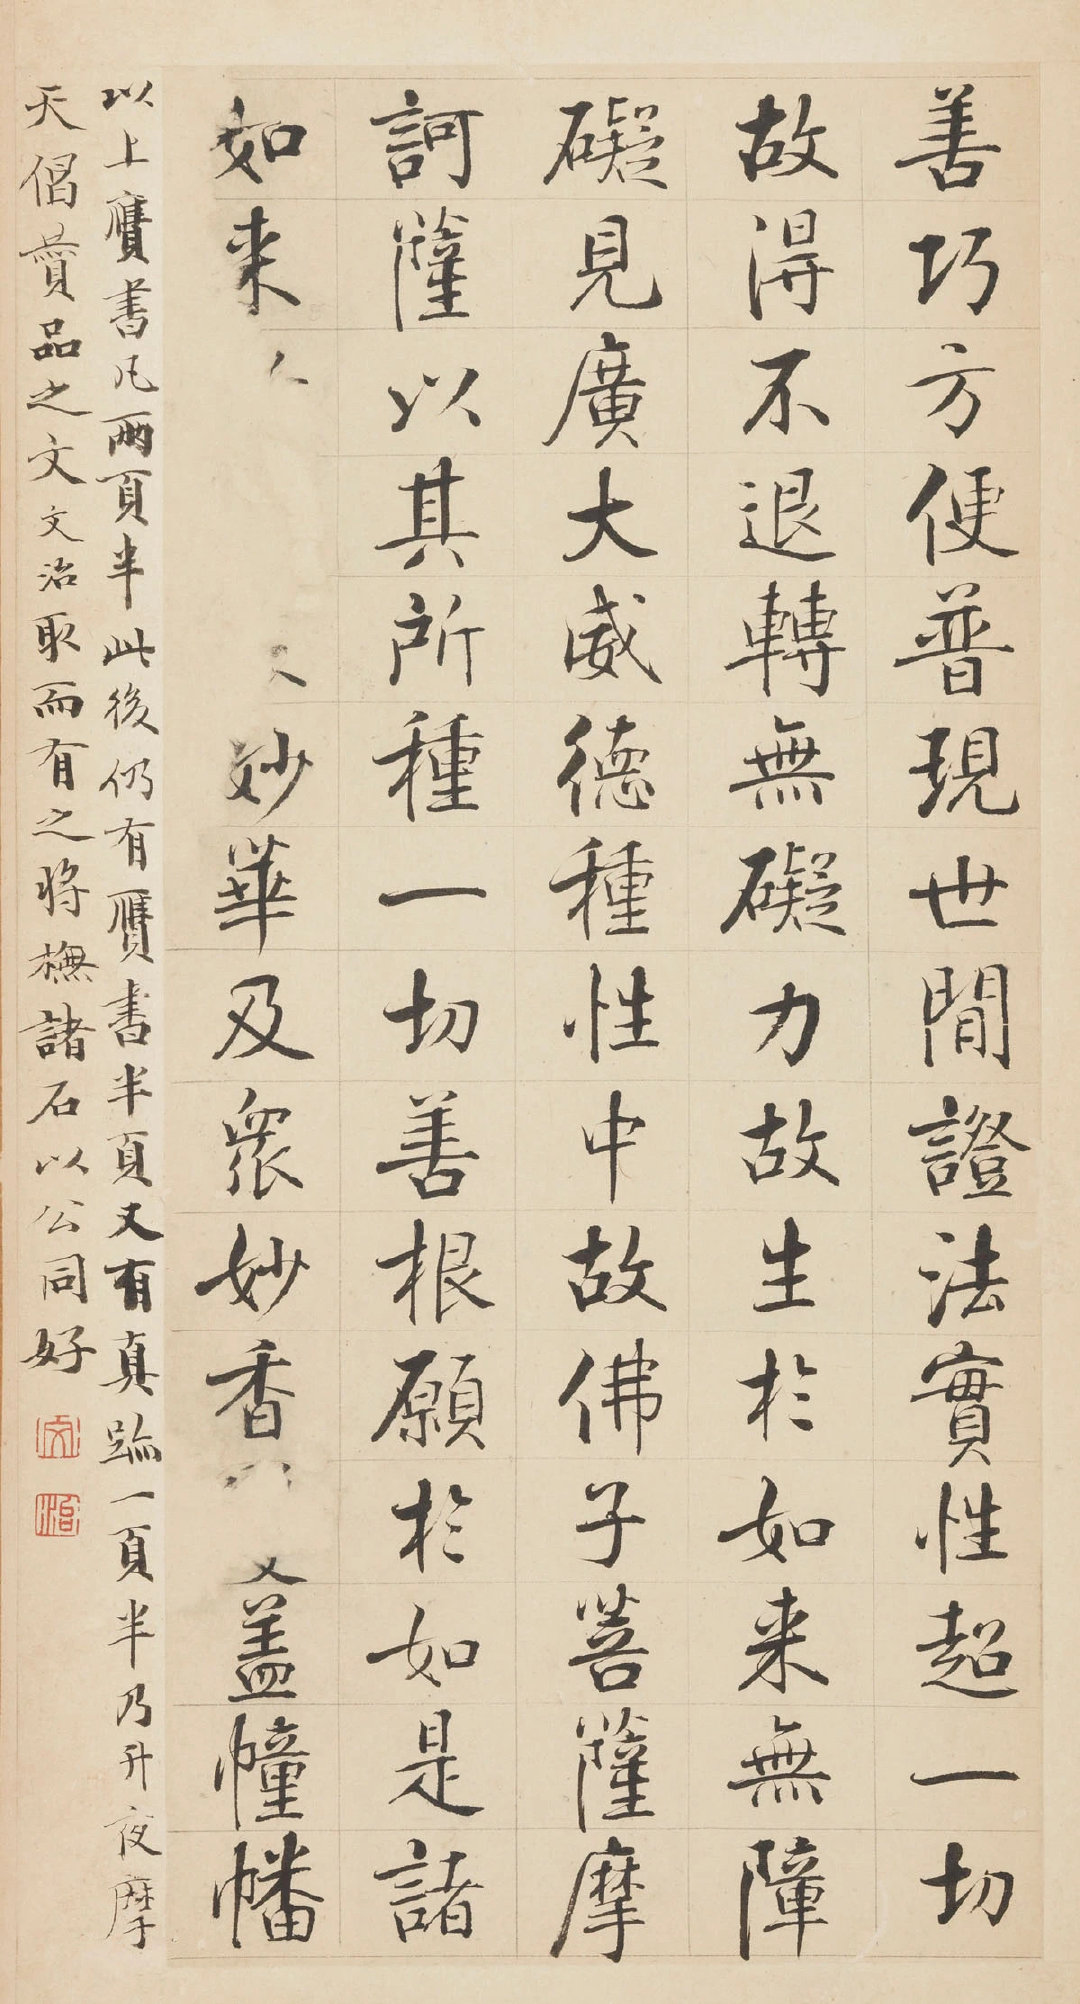 善巧方便普現世間證法實性超一切
故得不退轉無礙力故生於如来無障
礙見廣大威德種性中故佛子菩薩摩
訶薩以其所種一切善根願於如是諸
如来
妙華及眾妙香
盖幢幡
以上贗書凡兩頁半此後仍有贗書半頁又有真跡一頁半乃升夜摩
天偈贊品之文文治取而有之將橅諸石以公同好
文
治